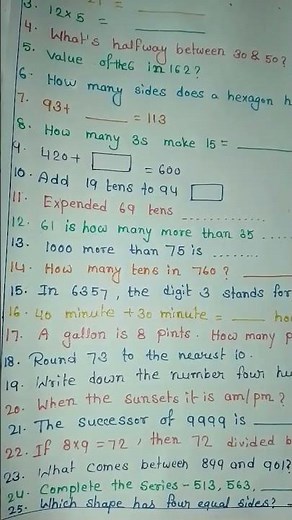 21 =
3. 12×5 =
4. What's halfway between 30 & 50?
5. Value of the 6 in 162?
6. How many sides does a hexagon h
7. 93+ ____ = 113
8. How many 3s make 15 = ____
9. 420+ = 600
10. Add 19 tens to 94
11. Expended 69 tens ..........
12. 61 is how many more than 35 ....
13. 1000 more than 75 is ........
14. How many tens in 760? ____
15. In 6357, the digit 3 stands for
16. 40 minute + 30 minute = ____ ho
17. A gallon is 8 pints. How many p
18. Round 73 to the nearest 10.
19. Write down the number four hu
20. When the sunsets it is am/pm?
21. The successor of 9999 is ____
22. If 8×9 = 72, then 72 divided b
23. What comes between 899 and 901?
24. Complete the series - 513, 563, ____
25. Which shape has four equal sides?